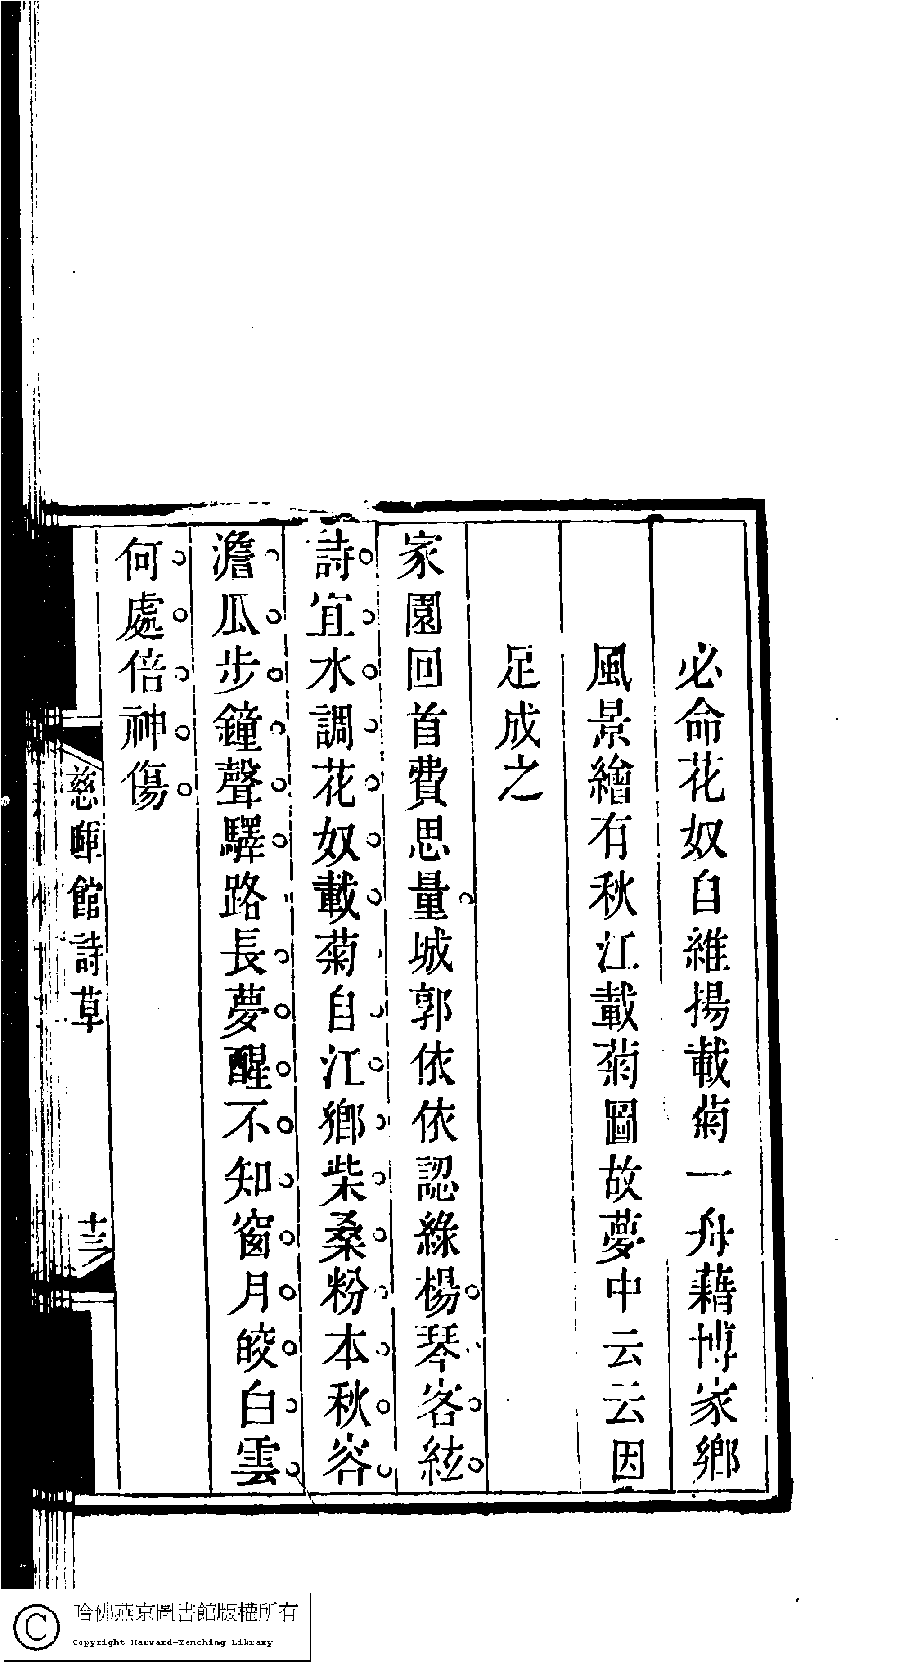 必命花奴自維揚載菊一舟藉博家鄉
風景繪有秋江載菊圖故夢中云云因
足成之
家園回首費思量城郭依依認綠楊琴客絃
詩宜水調花奴載菊自江鄉柴桑粉本秋容
澹瓜步鐘聲驛路長夢醒不知窗月皎白雲
何處倍神傷
慈暉館詩草
十三
哈佛燕京圖書館版權所有
Copyright Harvard-Yenching Library